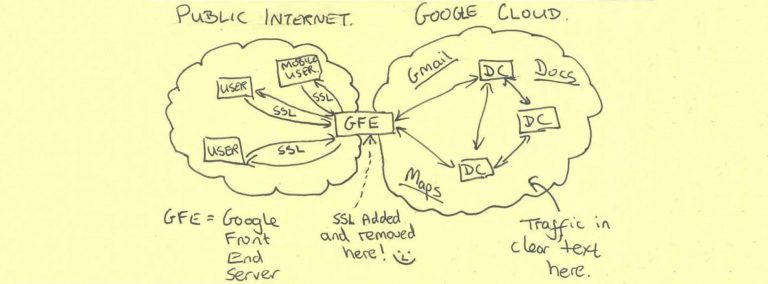 PUBLIC INTERNET.
GOOGLE CLOUD.
MOBILE
USER.
USER
SSL
SSL
USER
SSL
GFE
Gmail
DC
Docs
DC
DC
Maps
GFE = Google
Front
End
Server
SSL Added
and removed
here! ☺
Traffic in
clear text
here.